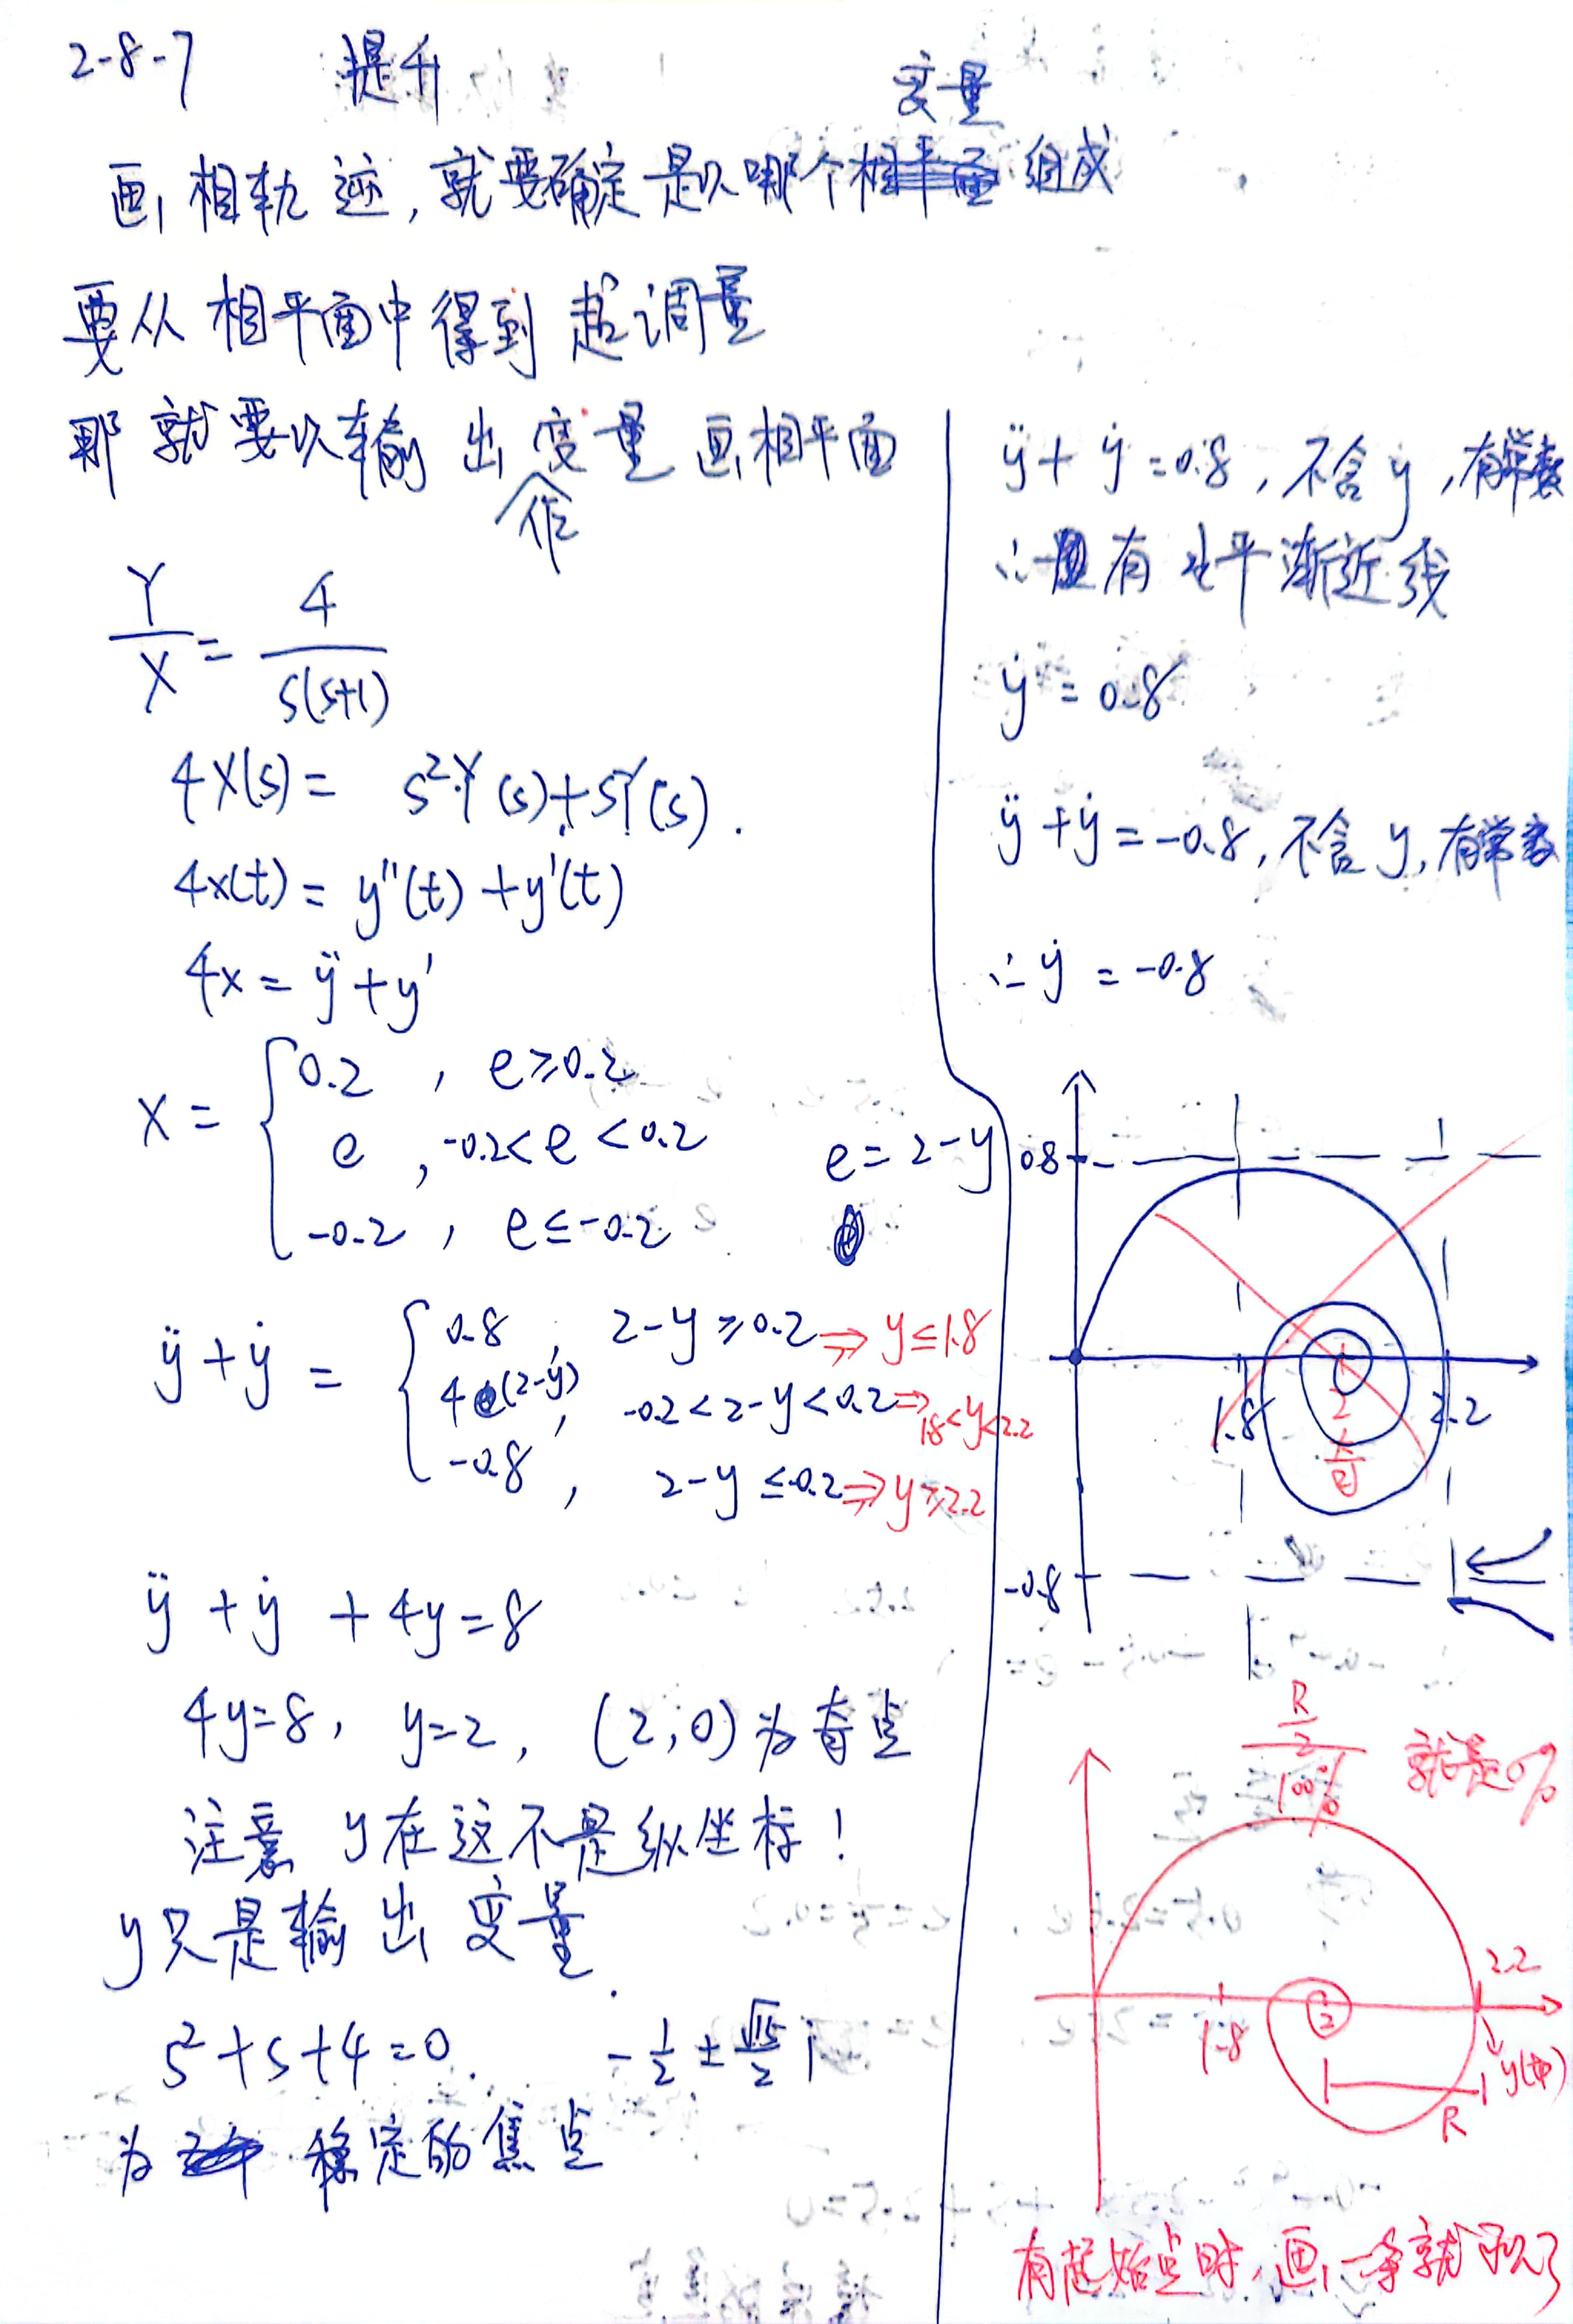 2-8-7 提升
变量
画相轨迹,就要确定是以哪个组成
要从相平面中得到超调量
那就要以输出变量画相平面
作
Y/X = 4/(s(s+1))
4X(s) = s²Y(s)+sY(s).
4x(t) = y''(t)+y'(t)
4x = ÿ+y'
x = { 0.2 , e≥0.2
e , -0.2<e<0.2
-0.2 , e≤-0.2
e=2-y
ÿ+ẏ = { 0.8 , 2-y≥0.2 ⇒ y≤1.8
4(2-y) , -0.2<2-y<0.2 ⇒ 1.8<y<2.2
-0.8 , 2-y≤-0.2 ⇒ y≥2.2
ÿ+ẏ+4y=8
4y=8, y=2, (2,0)为奇点
注意 y在这不是纵坐标!
y只是输出变量.
s²+s+4=0. -1/2 ± √15/2 j
为稳定的焦点
ÿ+ẏ=0.8, 不含y, 有常数
∴有水平渐近线
ẏ=0.8
ÿ+ẏ=-0.8, 不含y, 有常数
∴ẏ=-0.8
0.8
1.8
2
2.2
-0.8
R/2/100% 就是σ%
2.2
1.8
2
R
有起始点时,画一条就可以了